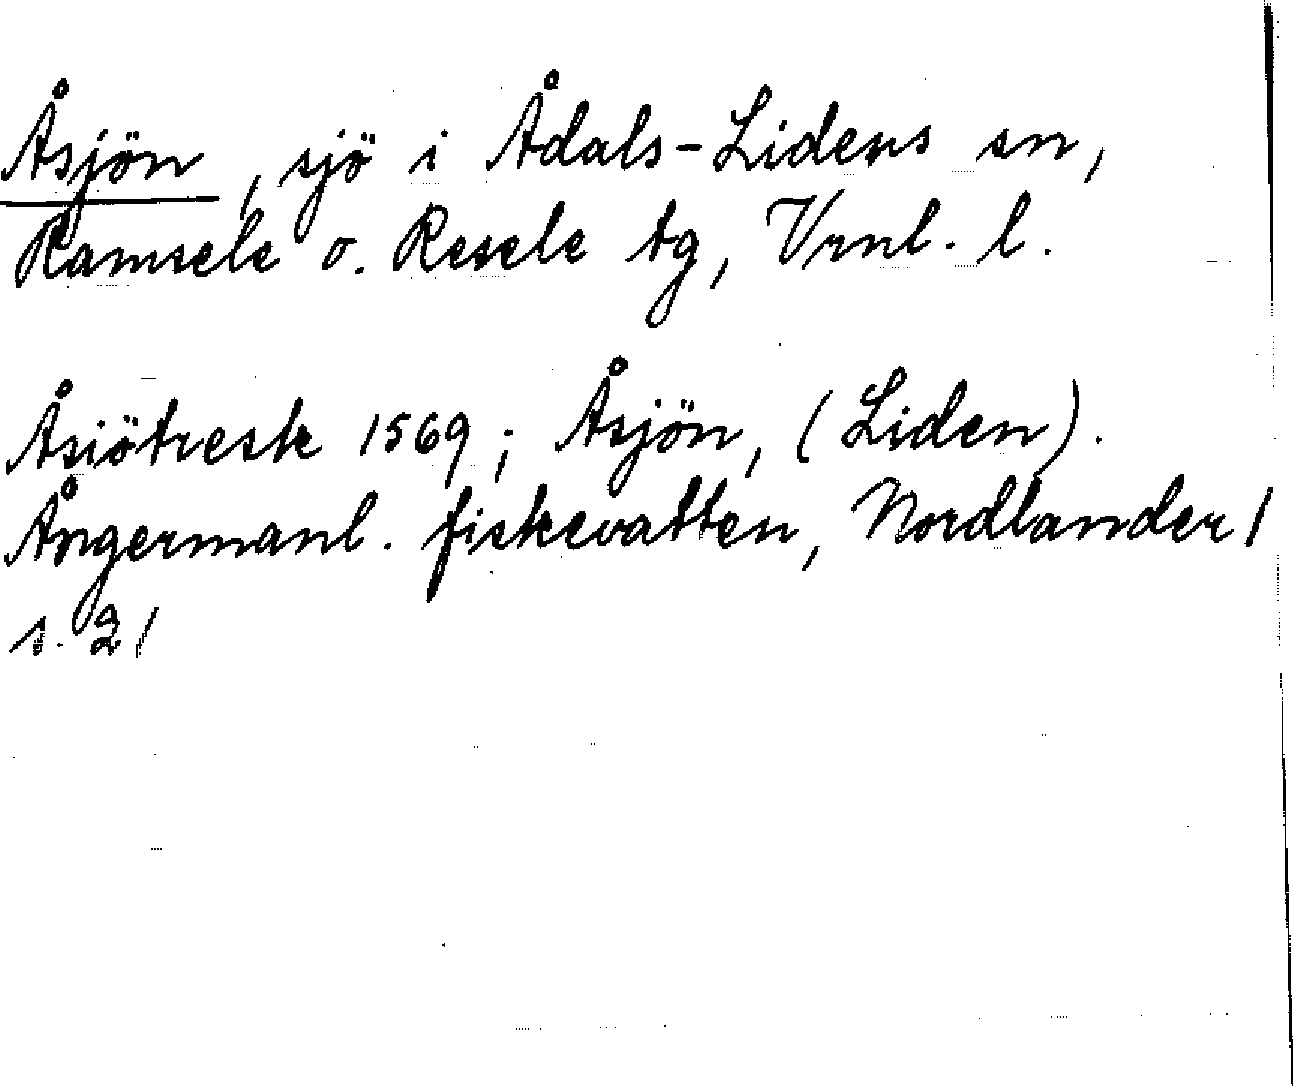 Åsjön, sjö i Ådals-Lidens sn,
Ramsele o. Resele tg, Vrnl. l.
Åsiötresk 1569; Åsjön, (Liden).
Ångermanl. fiskevatten, Nordlander,
s. 21